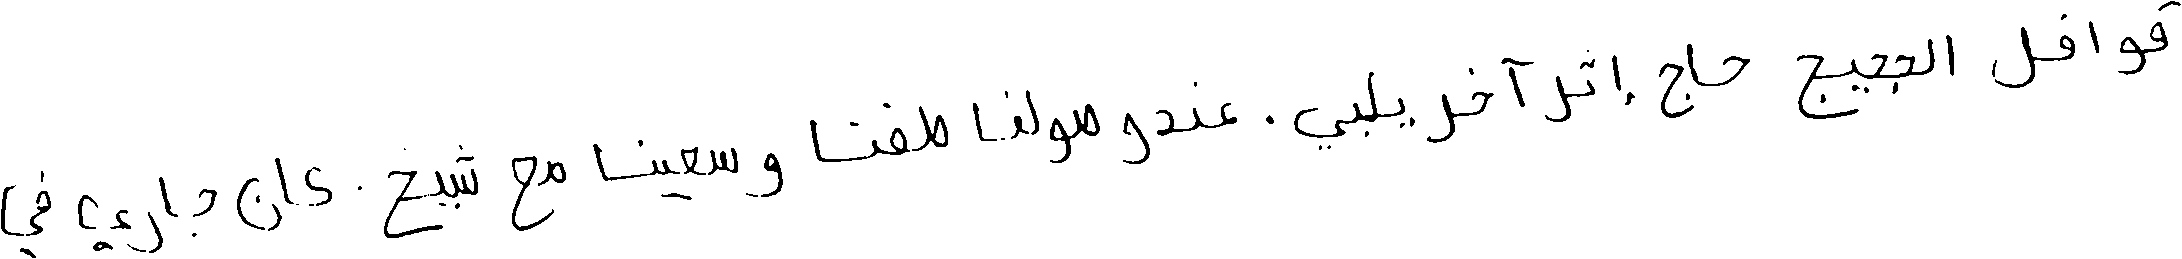 قوافل الحجيج حاج إثر آخر يلبي . عند وصولنا طفنا وسعينا مع شيخ . كان جاري في